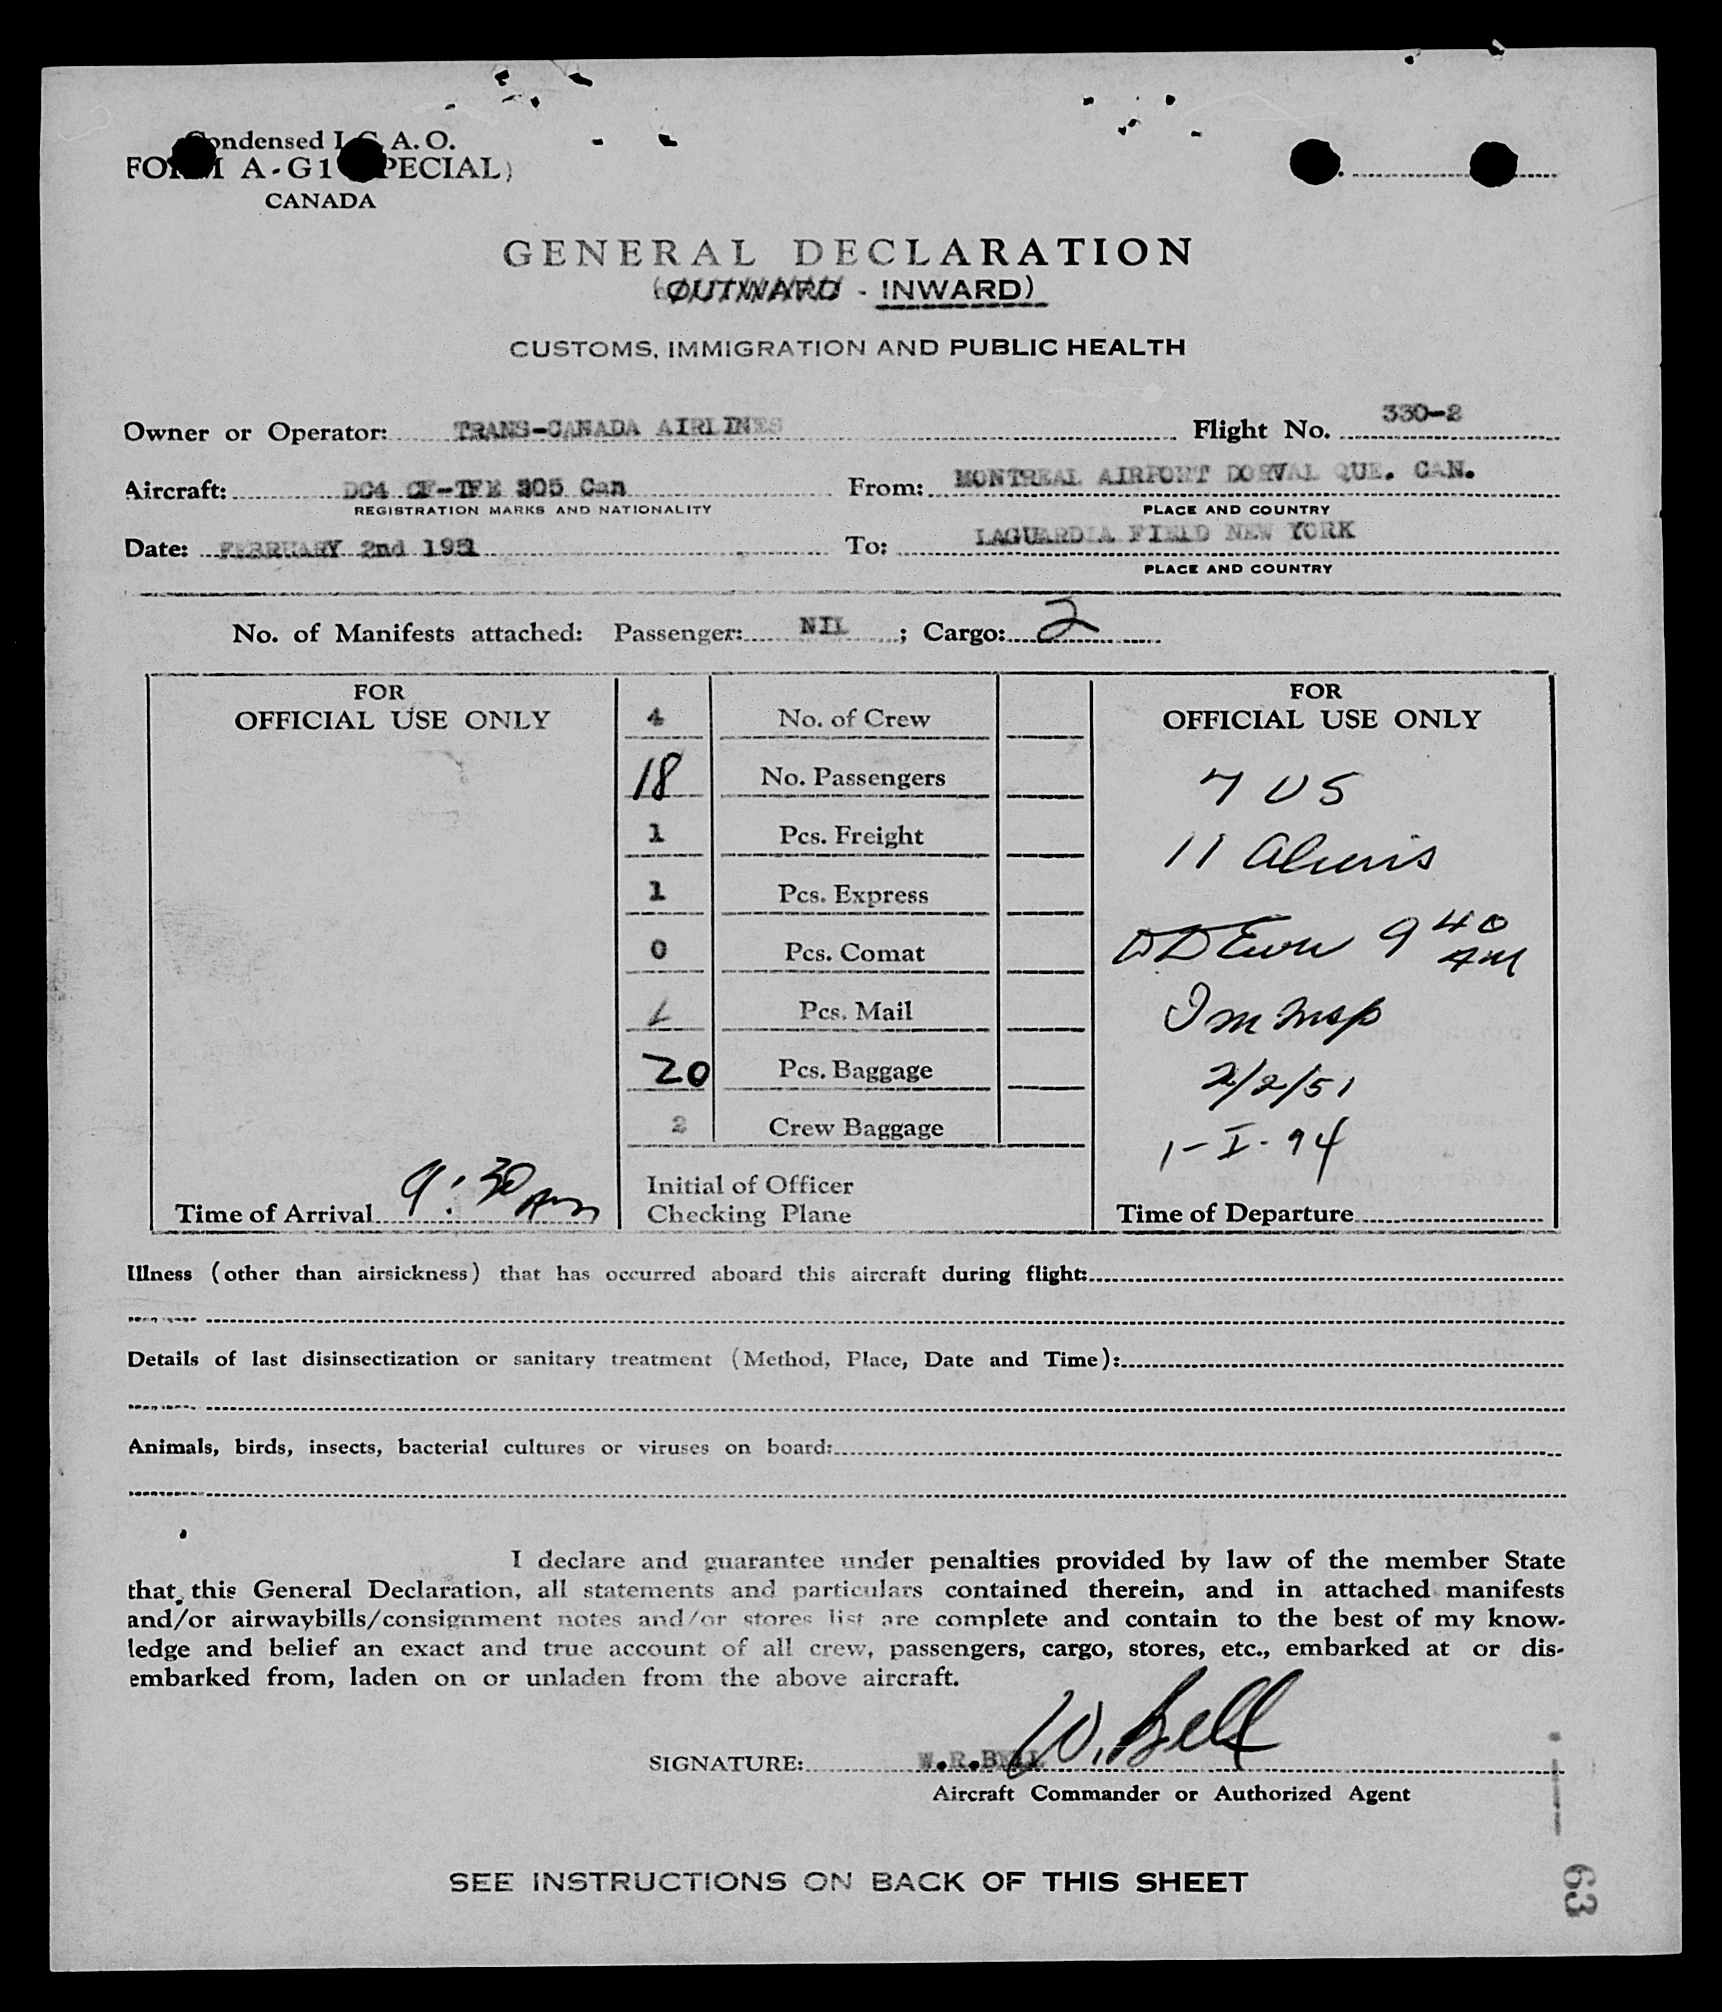 Condensed I.C.A.O.
FORM A-G1 (SPECIAL)
CANADA
GENERAL DECLARATION
(OUTWARD - INWARD)
CUSTOMS, IMMIGRATION AND PUBLIC HEALTH
Owner or Operator: TRANS-CANADA AIRLINES Flight No. 330-2
Aircraft: DC4 CF-TFE 305 Can From: MONTREAL AIRPORT DORVAL QUE. CAN.
REGISTRATION MARKS AND NATIONALITY PLACE AND COUNTRY
Date: FEBRUARY 2nd 1951 To: LAGUARDIA FIELD NEW YORK
PLACE AND COUNTRY
No. of Manifests attached: Passenger: NIL ; Cargo: 2
FOR
OFFICIAL USE ONLY
4 No. of Crew
18 No. Passengers
1 Pcs. Freight
1 Pcs. Express
0 Pcs. Comat
Pcs. Mail
20 Pcs. Baggage
2 Crew Baggage
Time of Arrival 9:30 Am
Initial of Officer
Checking Plane
FOR
OFFICIAL USE ONLY
7 US
11 Aliens
9 40 AM
Imm Insp
2/2/51
1-I-94
Time of Departure
Illness (other than airsickness) that has occurred aboard this aircraft during flight:
Details of last disinsectization or sanitary treatment (Method, Place, Date and Time):
Animals, birds, insects, bacterial cultures or viruses on board:
I declare and guarantee under penalties provided by law of the member State
that this General Declaration, all statements and particulars contained therein, and in attached manifests
and/or airwaybills/consignment notes and/or stores list are complete and contain to the best of my know-
ledge and belief an exact and true account of all crew, passengers, cargo, stores, etc., embarked at or dis-
embarked from, laden on or unladen from the above aircraft.
SIGNATURE: W.R.BELL W. Bell
Aircraft Commander or Authorized Agent
SEE INSTRUCTIONS ON BACK OF THIS SHEET
63